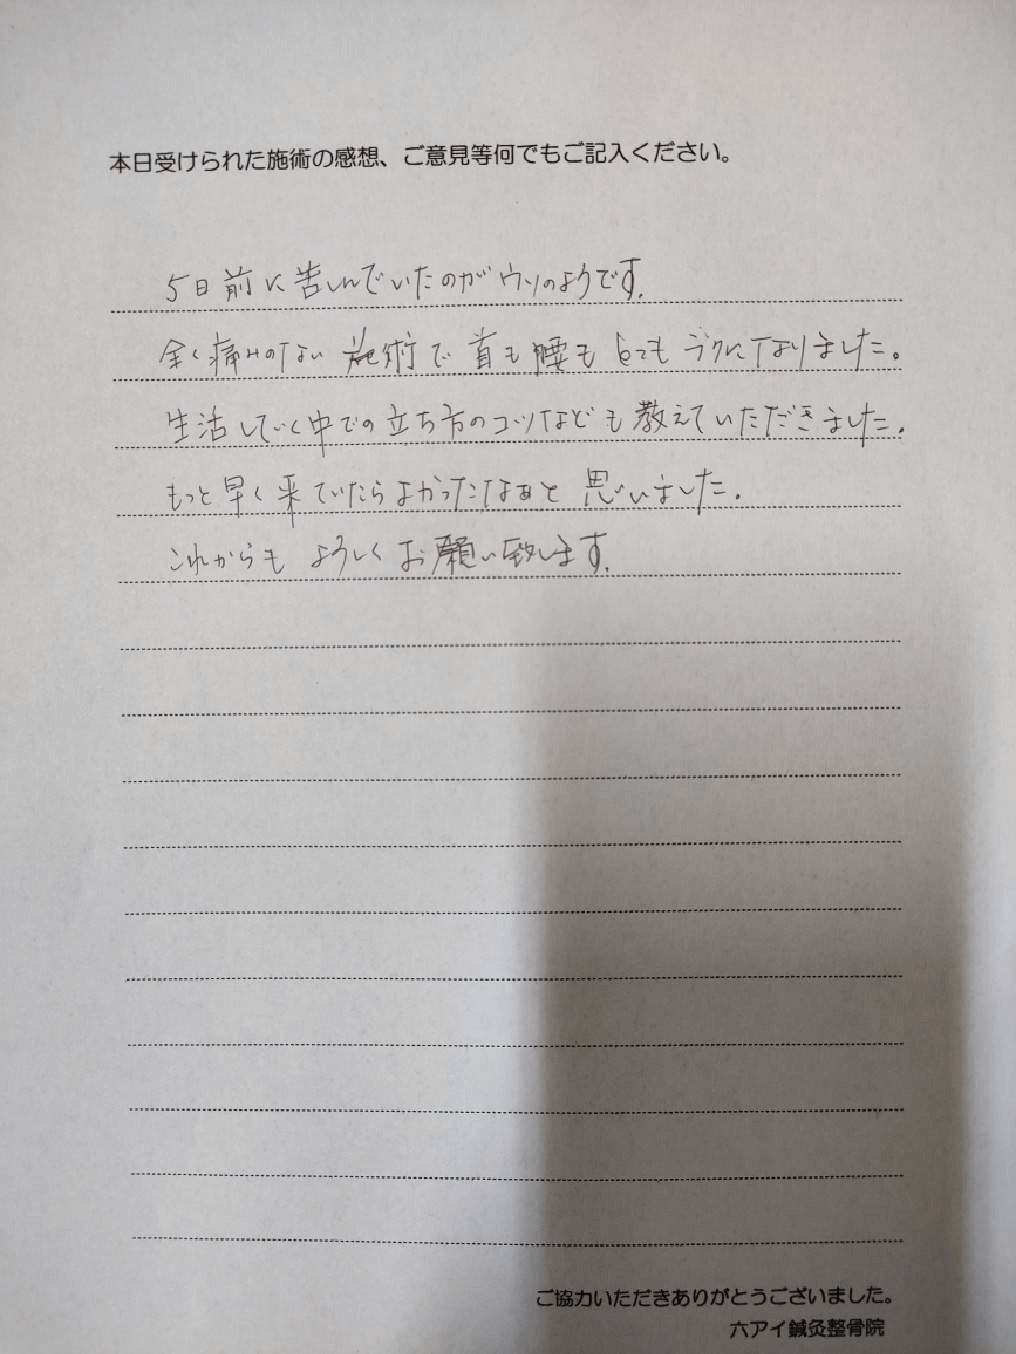 本日受けられた施術の感想、ご意見等何でもご記入ください。
5日前に苦しんでいたのがウソのようです。
全く痛みのない施術で首も腰もとてもラクになりました。
生活していく中での立ち方のコツなども教えていただきました。
もっと早く来ていたらよかったなぁと思いました。
これからもよろしくお願い致します。
ご協力いただきありがとうございました。
六アイ鍼灸整骨院